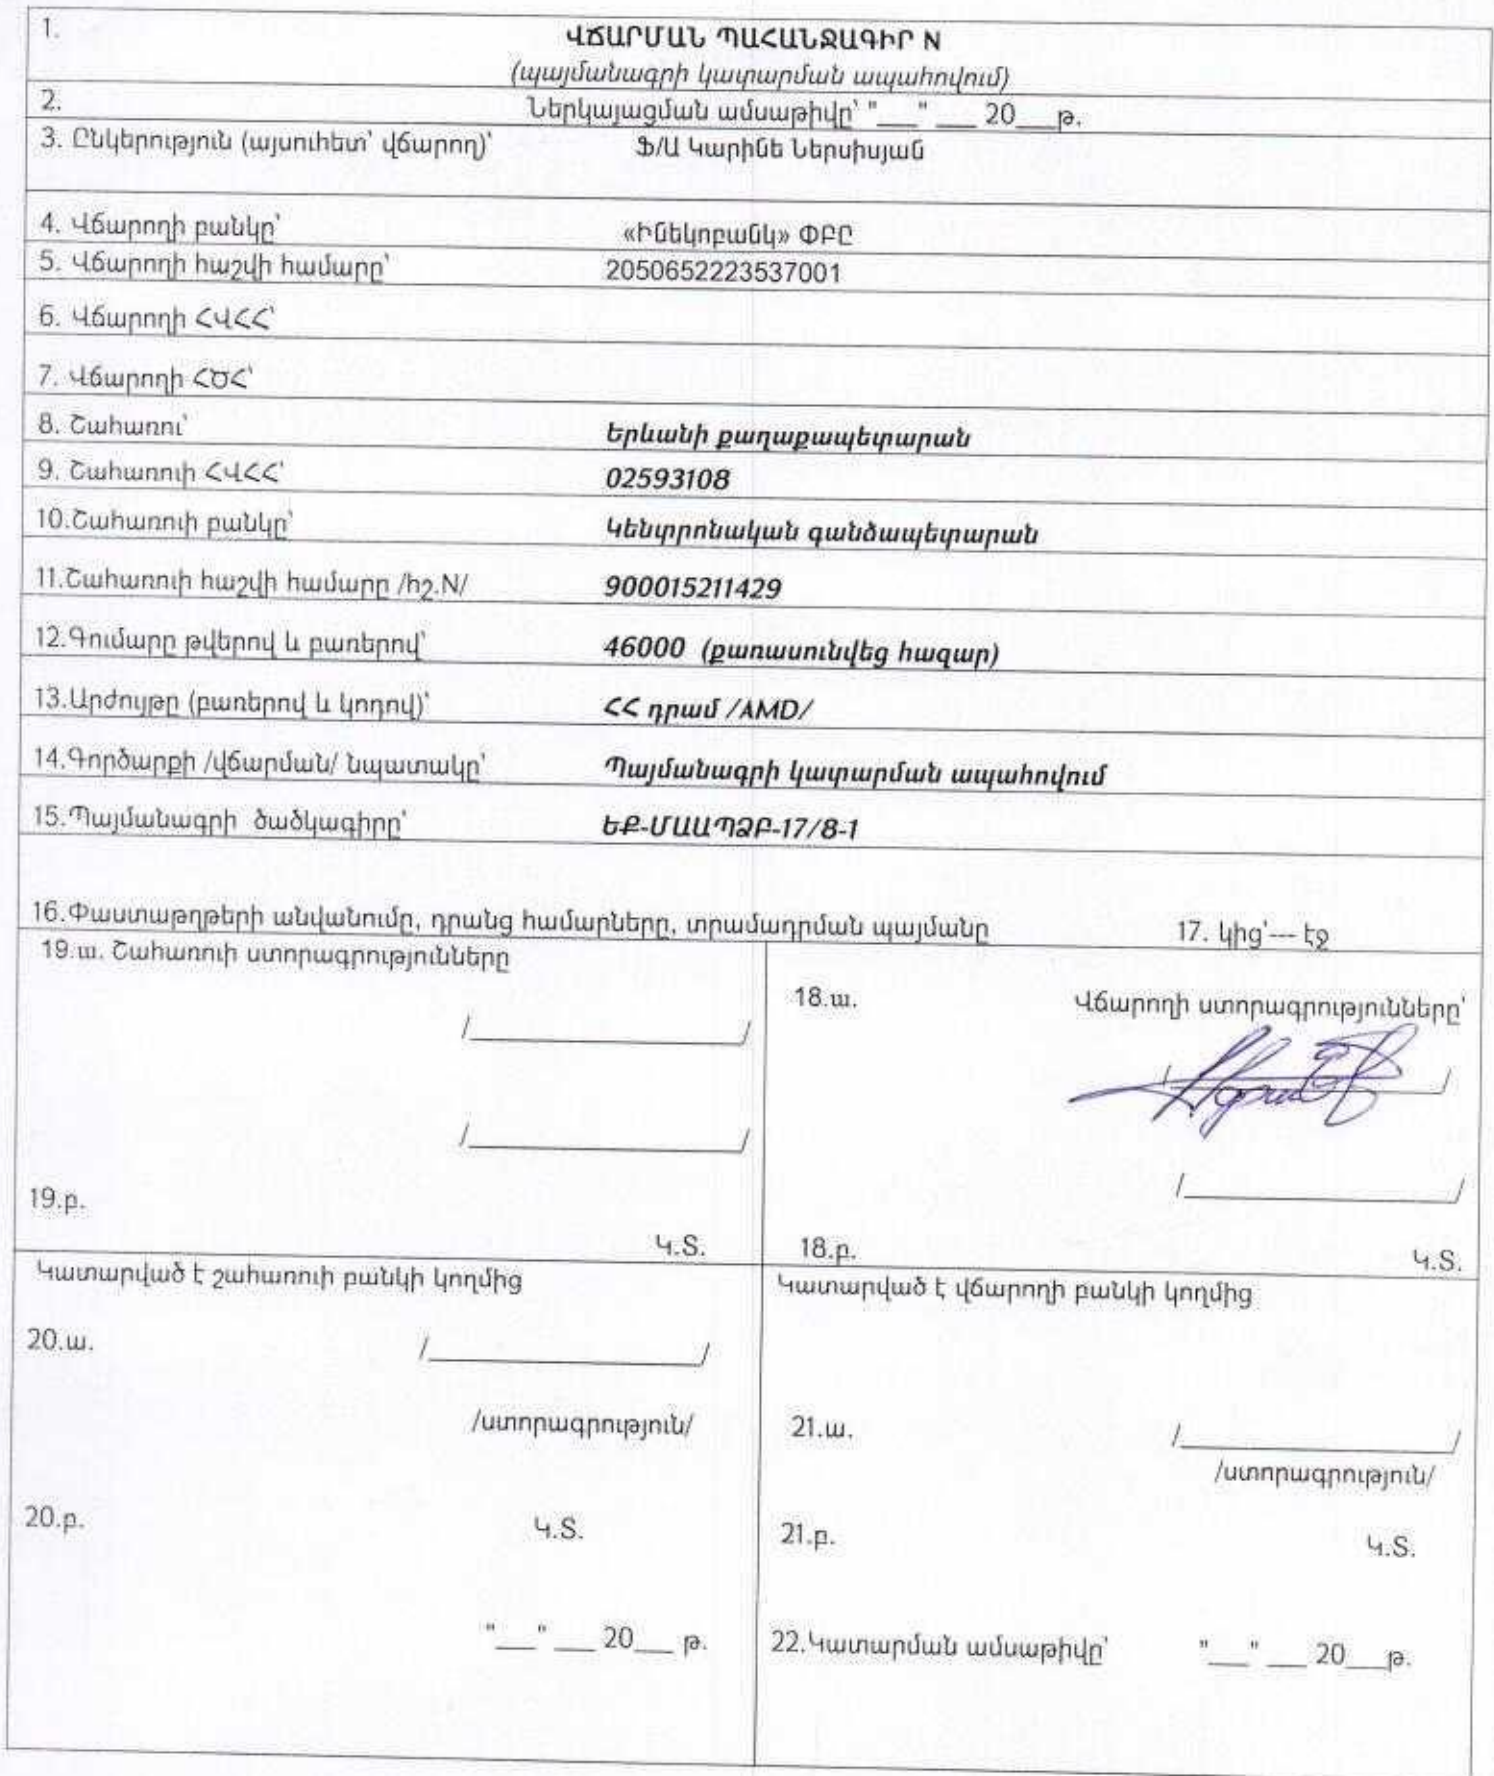 1. ՎՃԱՐՄԱՆ ՊԱՀԱՆՋԱԳԻՐ N
(պայմանագրի կատարման ապահովում)
2. Ներկայացման ամսաթիվը՝ "___" ___ 20___թ.
3. Ընկերություն (այսուհետ՝ վճարող)՝ Ֆ/Ա Կարինե Ներսիսյան
4. Վճարողի բանկը՝ «Ինեկոբանկ» ՓԲԸ
5. Վճարողի հաշվի համարը՝ 2050652223537001
6. Վճարողի ՀՎՀՀ՝
7. Վճարողի ՀԾՀ՝
8. Շահառու՝ Երևանի քաղաքապետարան
9. Շահառուի ՀՎՀՀ՝ 02593108
10.Շահառուի բանկը՝ Կենտրոնական գանձապետարան
11.Շահառուի հաշվի համարը /հշ.N/ 900015211429
12.Գումարը թվերով և բառերով՝ 46000 (քառասունվեց հազար)
13.Արժույթը (բառերով և կոդով)՝ ՀՀ դրամ /AMD/
14.Գործարքի /վճարման/ նպատակը՝ Պայմանագրի կատարման ապահովում
15.Պայմանագրի ծածկագիրը՝ ԵՔ-ՄԱԱՊՁԲ-17/8-1
16.Փաստաթղթերի անվանումը, դրանց համարները, տրամադրման պայմանը 17. կից՝--- էջ
19.ա. Շահառուի ստորագրությունները
/_______________/
/_______________/
19.բ.
Կ.Տ.
18.ա. Վճարողի ստորագրությունները՝
/_______________/
/_______________/
18.բ. Կ.Տ.
Կատարված է շահառուի բանկի կողմից
20.ա. /_______________/
/ստորագրություն/
20.բ. Կ.Տ.
"___" ___ 20___ թ.
Կատարված է վճարողի բանկի կողմից
21.ա. /_______________/
/ստորագրություն/
21.բ. Կ.Տ.
22.Կատարման ամսաթիվը՝ "___" ___ 20___թ.